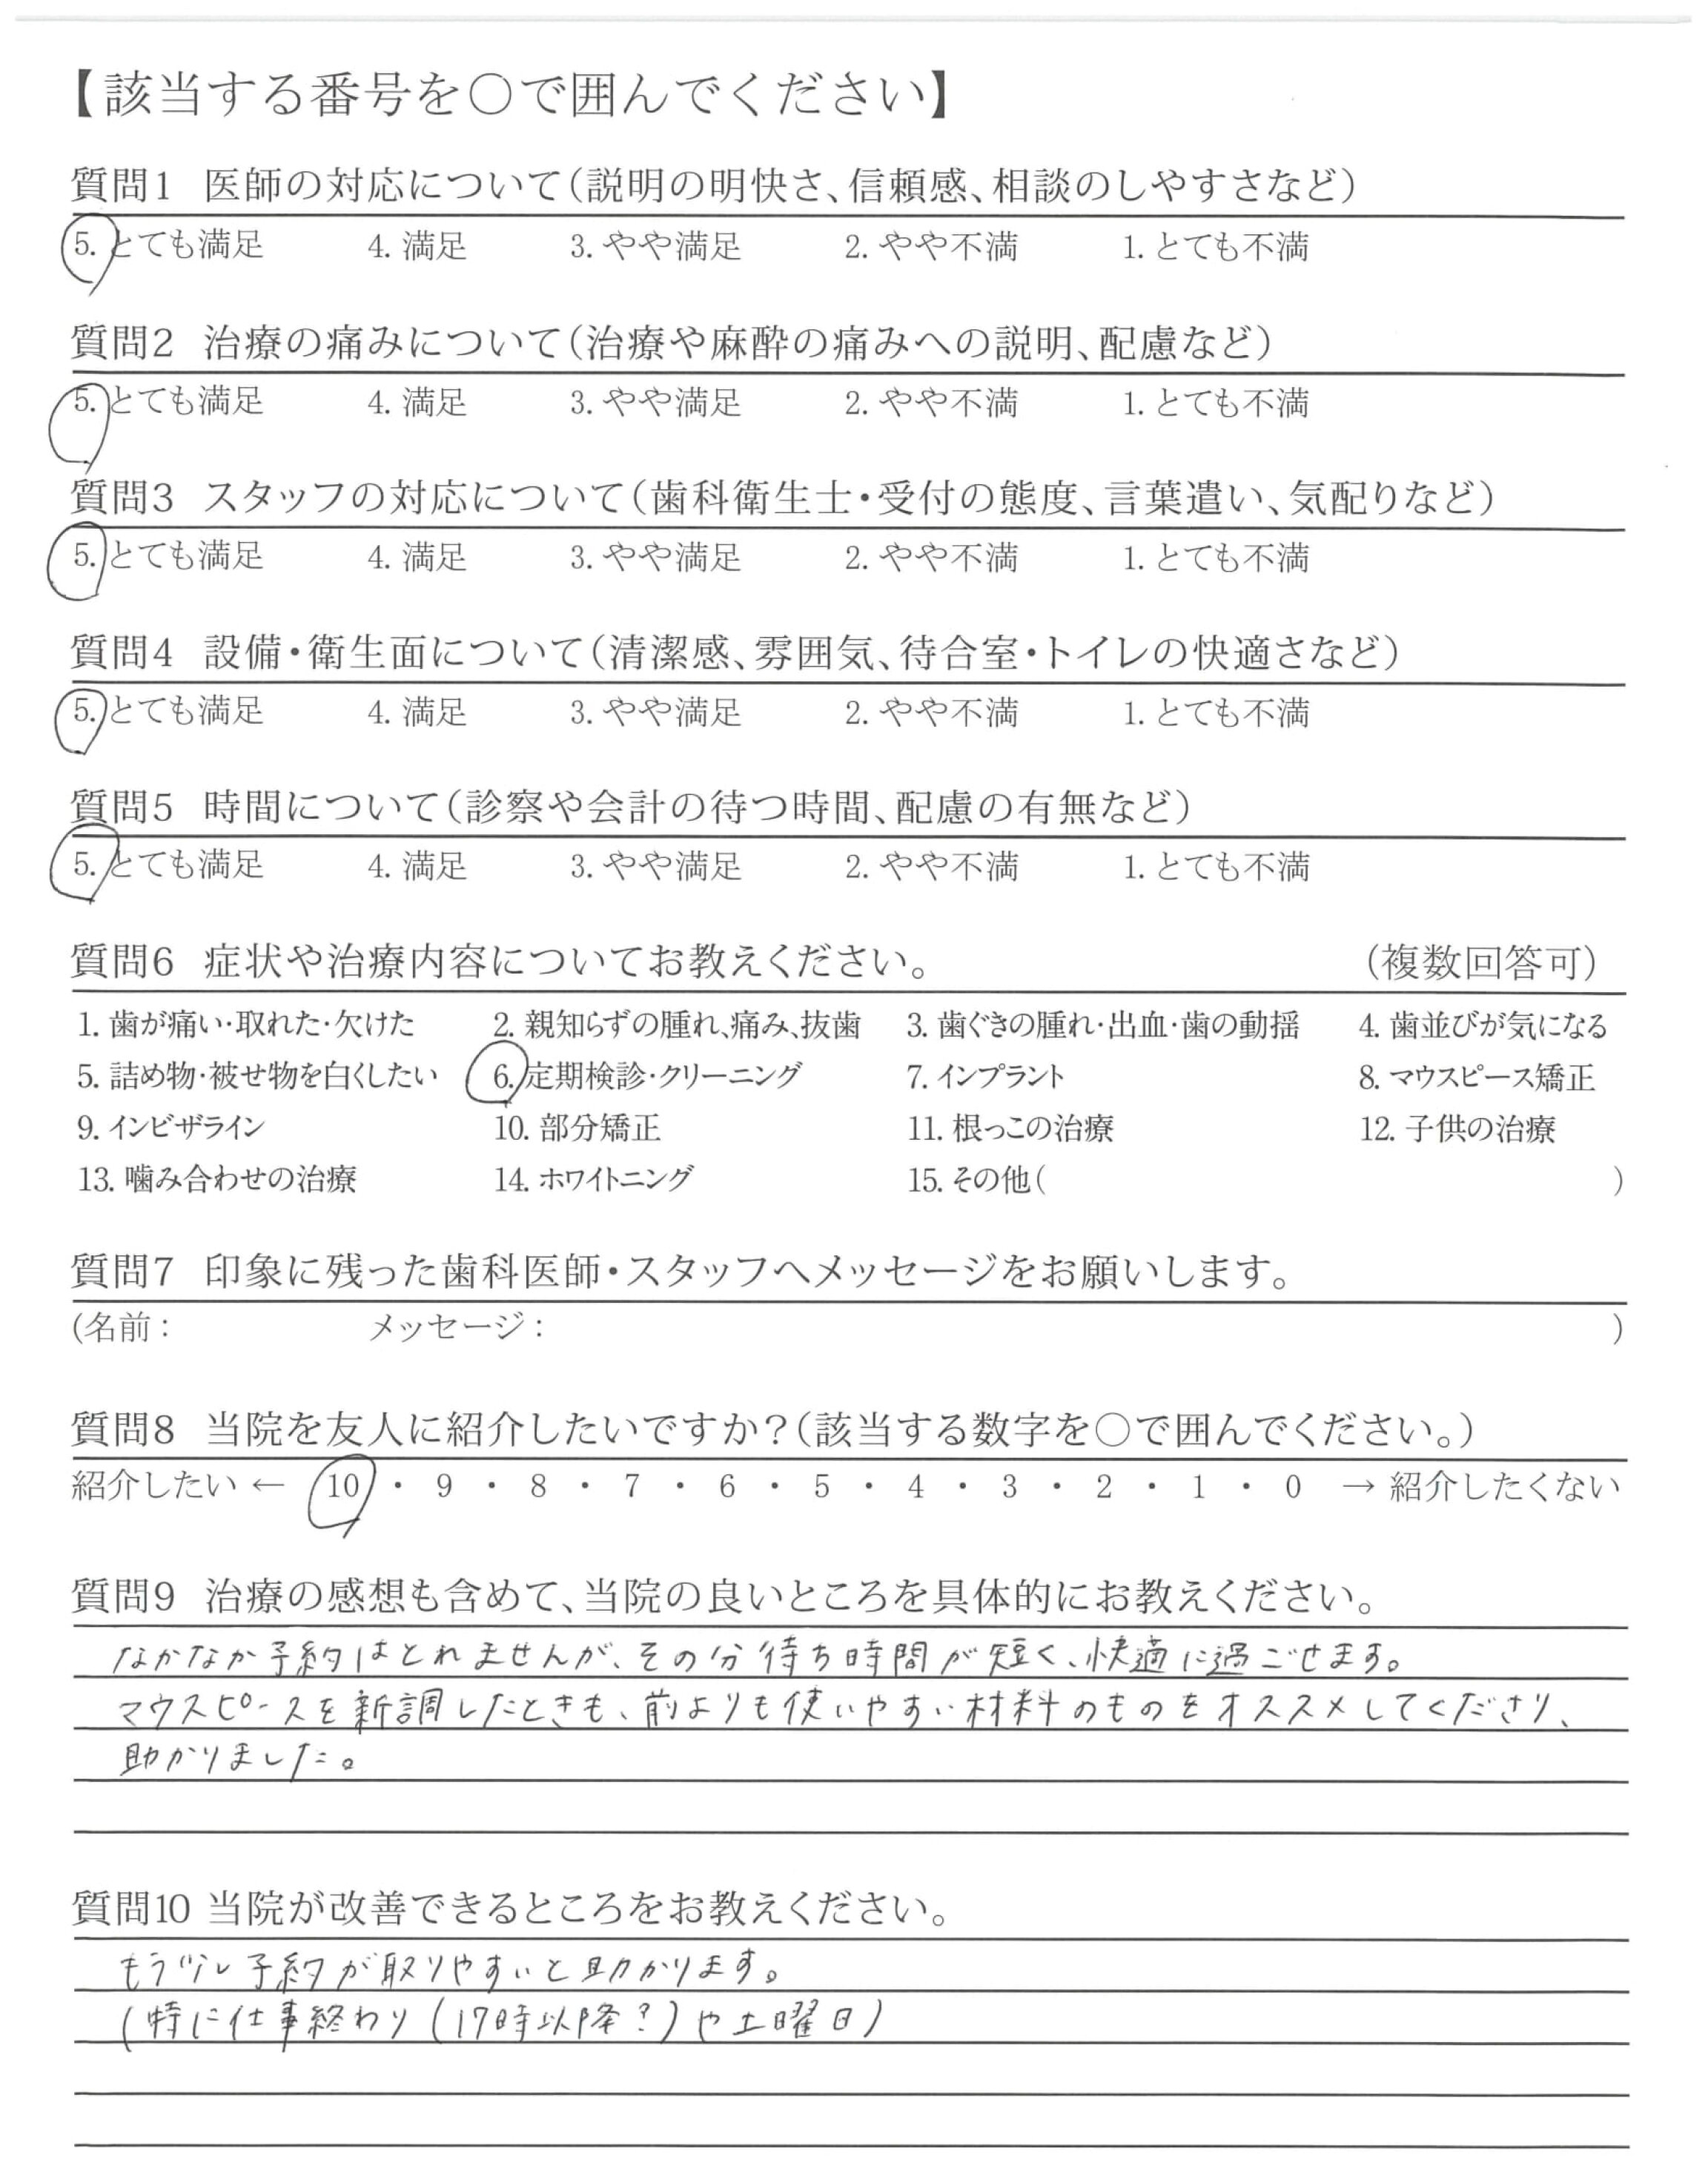 【該当する番号を○で囲んでください】
質問1 医師の対応について(説明の明快さ、信頼感、相談のしやすさなど)
5. とても満足 4. 満足 3. やや満足 2. やや不満 1. とても不満
質問2 治療の痛みについて(治療や麻酔の痛みへの説明、配慮など)
5. とても満足 4. 満足 3. やや満足 2. やや不満 1. とても不満
質問3 スタッフの対応について(歯科衛生士・受付の態度、言葉遣い、気配りなど)
5. とても満足 4. 満足 3. やや満足 2. やや不満 1. とても不満
質問4 設備・衛生面について(清潔感、雰囲気、待合室・トイレの快適さなど)
5. とても満足 4. 満足 3. やや満足 2. やや不満 1. とても不満
質問5 時間について(診察や会計の待つ時間、配慮の有無など)
5. とても満足 4. 満足 3. やや満足 2. やや不満 1. とても不満
質問6 症状や治療内容についてお教えください。 (複数回答可)
1. 歯が痛い・取れた・欠けた 2. 親知らずの腫れ、痛み、抜歯 3. 歯ぐきの腫れ・出血・歯の動揺 4. 歯並びが気になる
5. 詰め物・被せ物を白くしたい 6. 定期検診・クリーニング 7. インプラント 8. マウスピース矯正
9. インビザライン 10. 部分矯正 11. 根っこの治療 12. 子供の治療
13. 噛み合わせの治療 14. ホワイトニング 15. その他( )
質問7 印象に残った歯科医師・スタッフへメッセージをお願いします。
(名前: メッセージ: )
質問8 当院を友人に紹介したいですか?(該当する数字を○で囲んでください。)
紹介したい ← 10 ・ 9 ・ 8 ・ 7 ・ 6 ・ 5 ・ 4 ・ 3 ・ 2 ・ 1 ・ 0 → 紹介したくない
質問9 治療の感想も含めて、当院の良いところを具体的にお教えください。
なかなか予約はとれませんが、その分待ち時間が短く、快適に過ごせます。
マウスピースを新調したときも、前よりも使いやすい材料のものをオススメしてくださり、
助かりました。
質問10 当院が改善できるところをお教えください。
もう少し予約が取りやすいと助かります。
(特に仕事終わり(17時以降?)や土曜日)